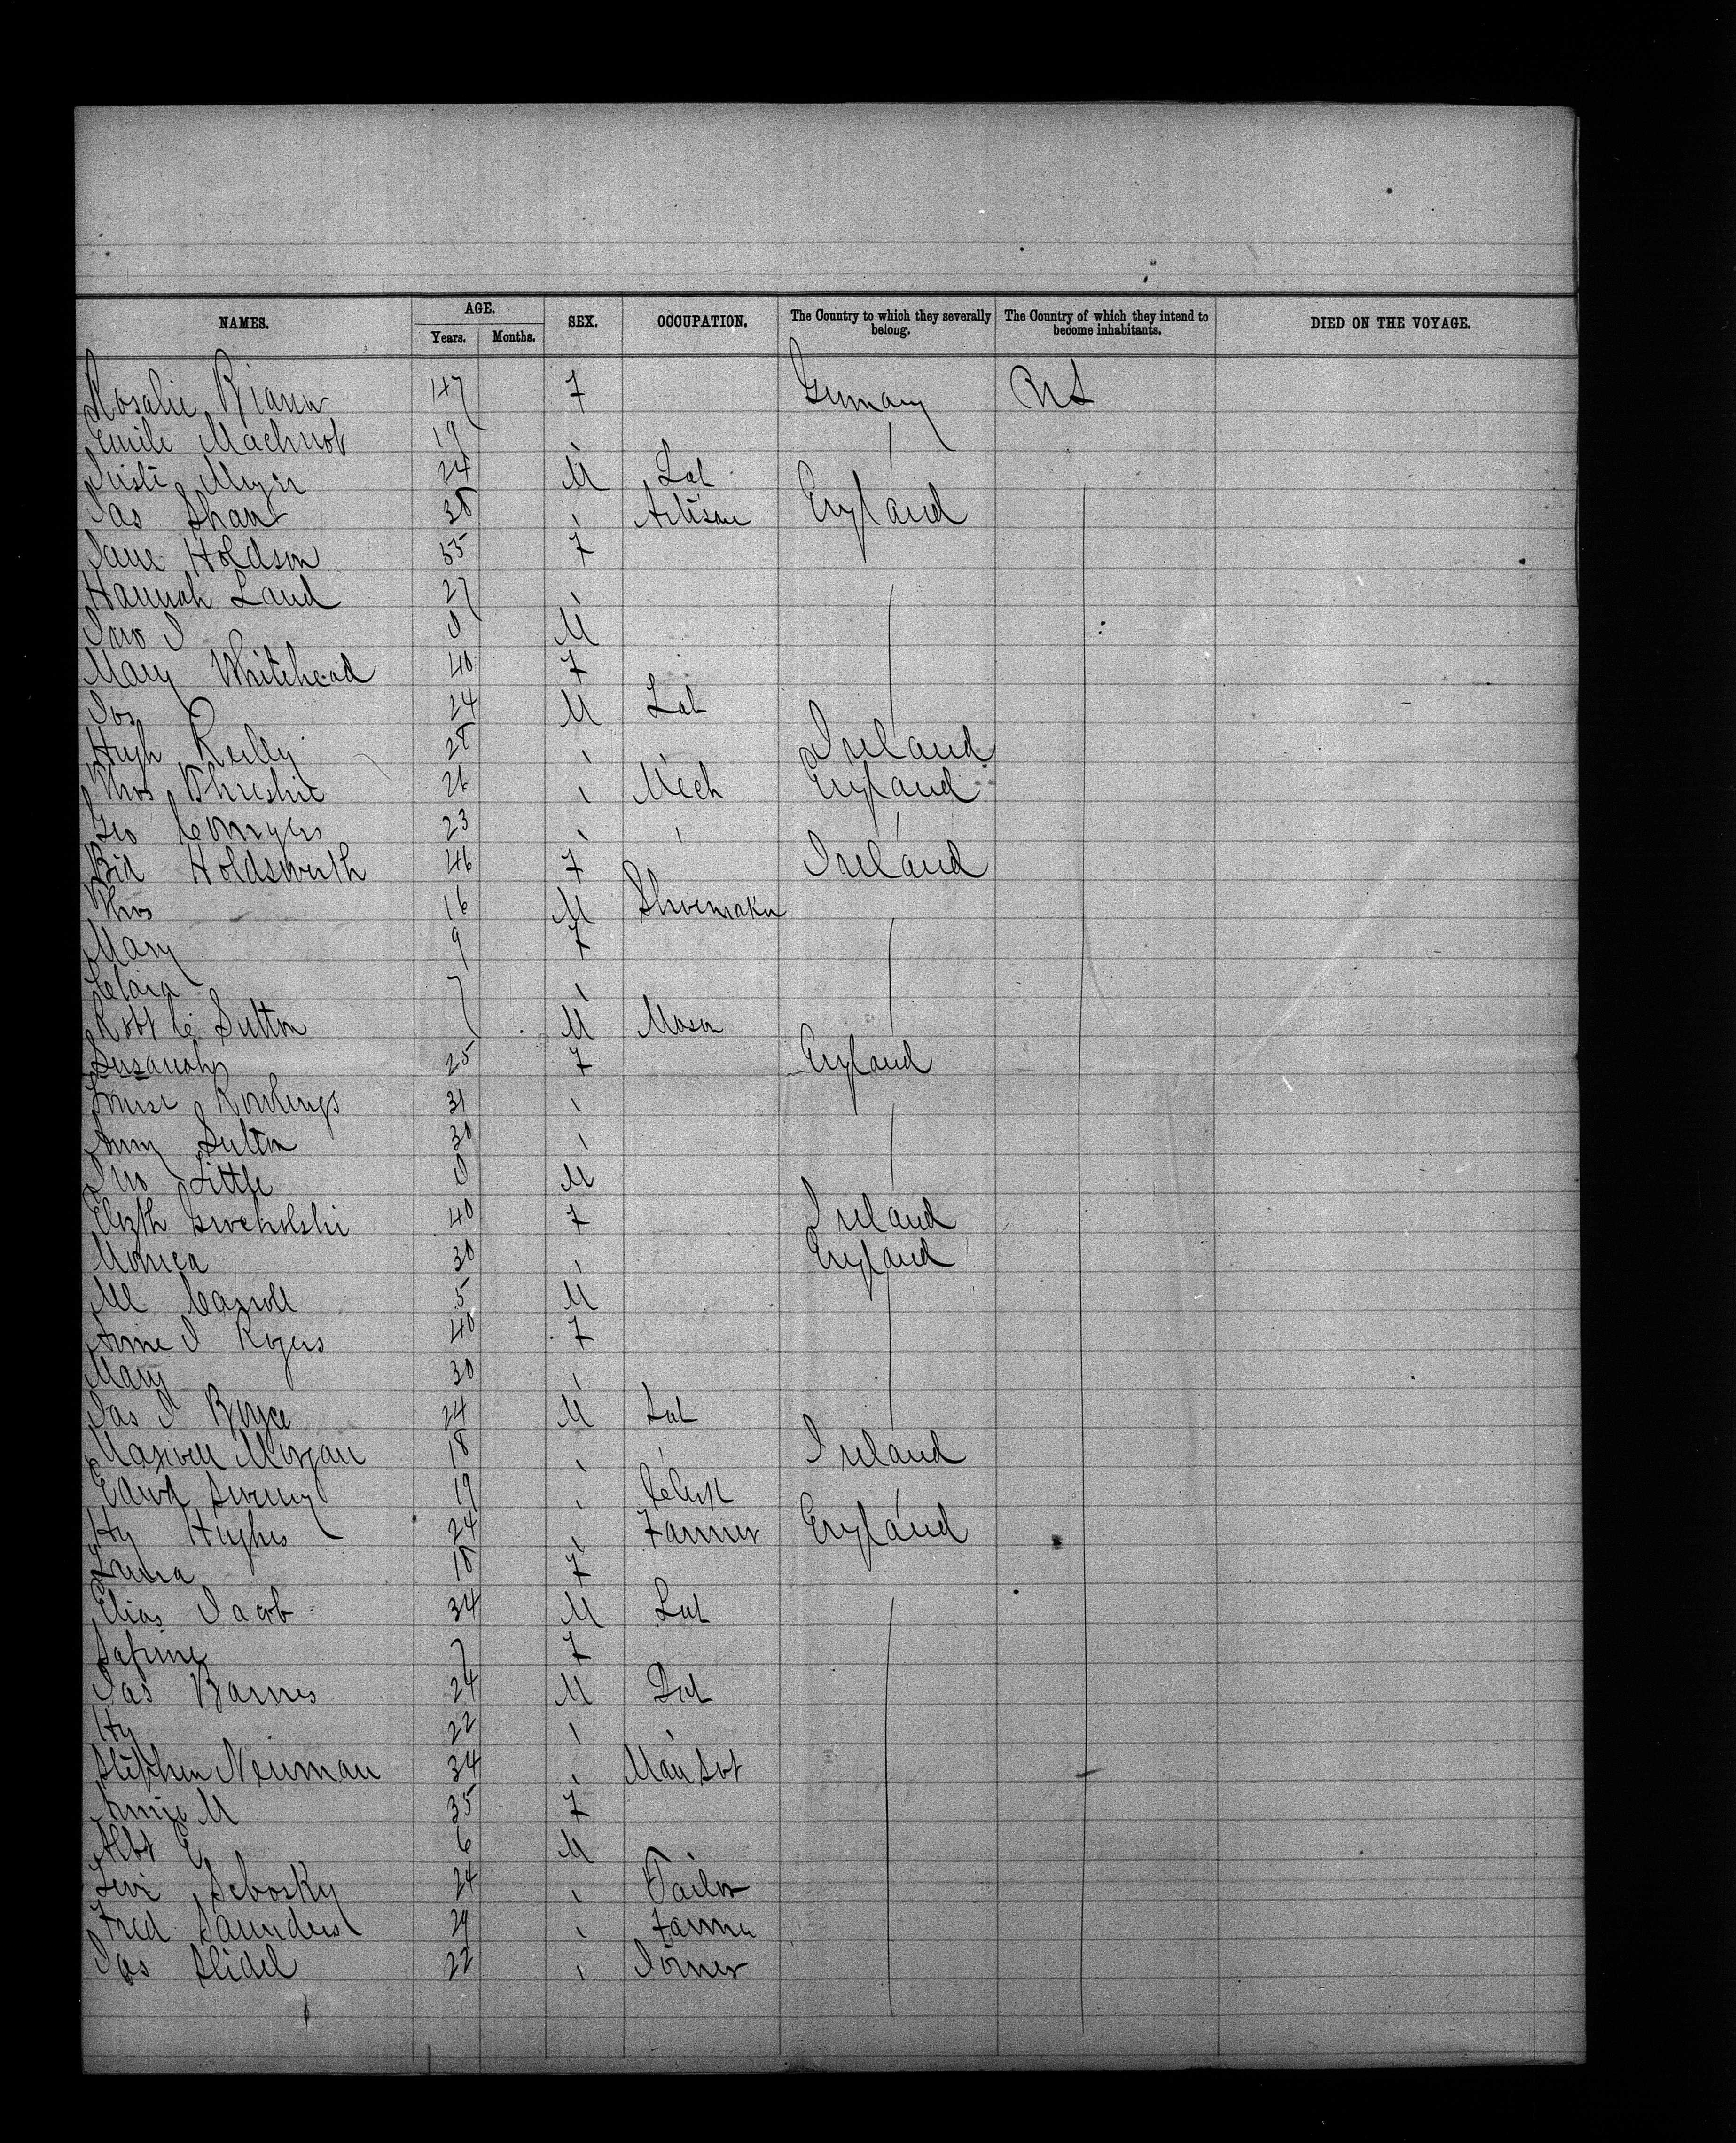 NAMES. AGE. SEX. OCCUPATION. The Country to which they severally belong. The Country of which they intend to become inhabitants. DIED ON THE VOYAGE.
Years. Months.
Rosalie 47 F Germany US
Emile Machnot 19 "
Meyer 24 M Lab
Jas Shaw 38 " Artisan England
Jane Holdson 55 F
Hannah Land 27 "
Jno J M
Mary Whitehead 40 F
Jos 24 M Lab
Hugh Reilly 28 " " Ireland
Thos 26 " Mech England
Geo Conyers 23 " " "
Bid Holdsworth 46 F Ireland
Thos 16 M Shoemaker
Mary 9 F
Clara 7 "
Robt C Sutton M Mason
Susanah 25 F England
Louise Rawlings 31 "
Anny Sutton 30 "
Jno Little M
Elizth 40 F Ireland
Monica 30 " England
Ml Carroll 5 M
Annie J Rogers 40 F
Mary 30 "
Jas J Boyce 24 M Lab
Maxwell Morgan 18 " " Ireland
Edwd Sweeny 19 " Clerk "
Hy Hughes 24 " Farmer England
Laura 18 F
Elias Jacob 34 M Lab
7 F
Jas Barnes 24 M Lab
Hy 22 " "
Stephen Neuman 34 "
Annie M 35 F
Albt E 6 M
Levi Sebosky 24 " Tailor
Fred Saunders 29 " Farmer
Jas Slidel 22 " Joiner